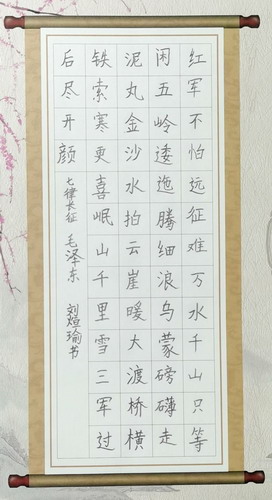 红军不怕远征难万水千山只等
闲五岭逶迤腾细浪乌蒙磅礴走
泥丸金沙水拍云崖暖大渡桥横
铁索寒更喜岷山千里雪三军过
后尽开颜 七律长征 毛泽东 刘煊瑜书